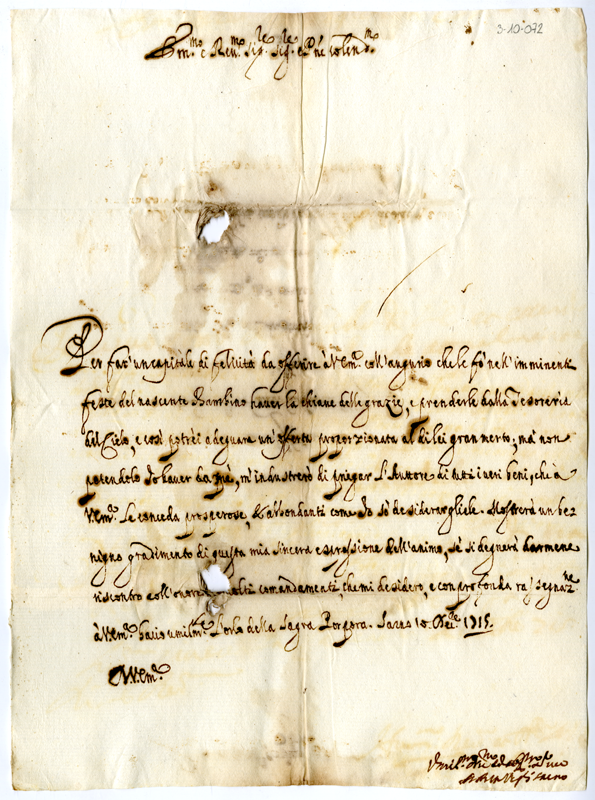 3-10-072
Em.mo e Rev.mo Sig.re Sig.re e P'ne Colend.mo
Per far' un capitale di felicità da offerire à V.Em.a coll'augurio che le fò nell'imminenti
feste del nascente Bambino haver la chiave delle grazie, e prenderle dalla Tesoreria
del Cielo, e così potrei adeguare un'offerta proporzionata al di lei gran merto; mà non
potendolo Io haver da mè, m'industrerò di pregar l'Auttore di tutti i veri beni, che à
V.Em.a le conceda prosperose, et abbondanti come Io sò desiderargliele. Mostrerà un be=
nigno gradimento di questa mia sincera espressione dell'animo, sè si degnerà darmene
riscontro coll'onore comandamenti, che mi desidero, e con profonda rassegnaz.ne
à V.Em.a bacio umilm.te l'orlo della Sagra Porpora. Sarno 10. Dec.bre 1715.
D.V.Em.a